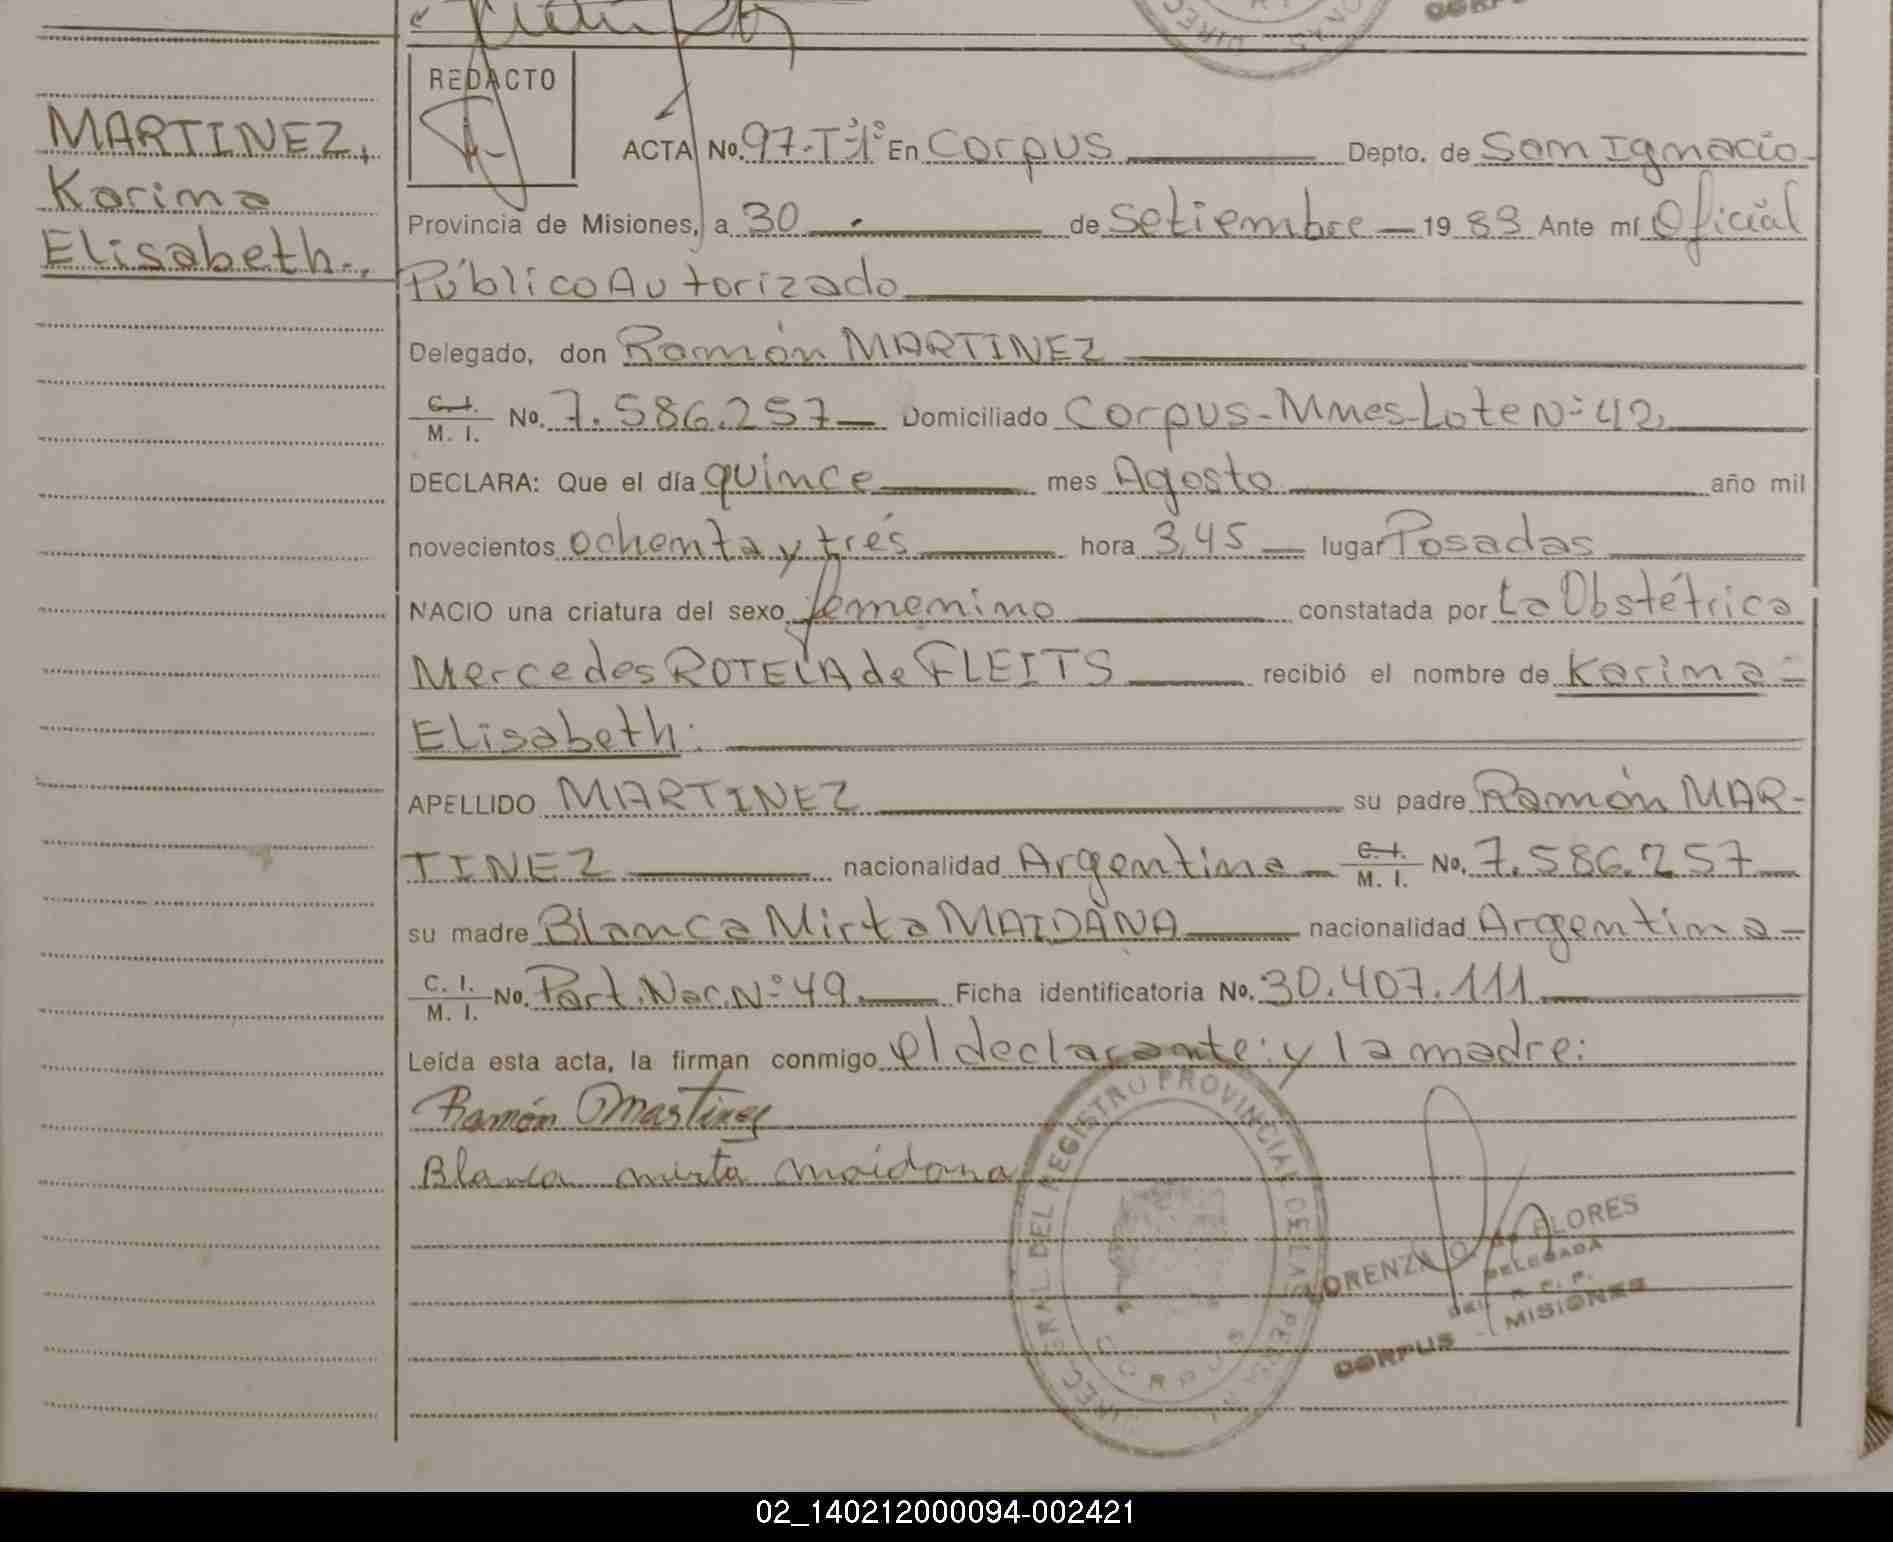 MARTINEZ,
Karina
Elisabeth.,
REDACTO
ACTA No. 97-Tº1º En Corpus Depto. de San Ignacio
Provincia de Misiones, a 30 de Setiembre 1983 Ante mí Oficial
Público Autorizado
Delegado, don Ramón MARTINEZ
C. I. M. I. No. 7.586.257 Domiciliado Corpus-Mnes-Lote Nº 42,
DECLARA: Que el día quince mes Agosto año mil
novecientos ochenta y trés hora 3,45 lugar Posadas
NACIO una criatura del sexo femenino constatada por La Obstétrica
Mercedes ROTELA de FLEITS recibió el nombre de Karina
Elisabeth.
APELLIDO MARTINEZ su padre Ramón MAR-
TINEZ nacionalidad Argentina C. I. M. I. No. 7.586.257
su madre Blanca Mirta MAIDANA nacionalidad Argentina
C. I. M. I. No. Part. Nac. Nº 49 Ficha identificatoria No. 30.407.111
Leída esta acta, la firman conmigo el declarante: y la madre:
Ramón Martinez
Blanca mirta maidana
REGISTRO PROVINCIAL DE LAS PERSONAS
CORPUS
LORENZA FLORES
DELEGADA
DEL R. P. P.
CORPUS - MISIONES
02_140212000094-002421